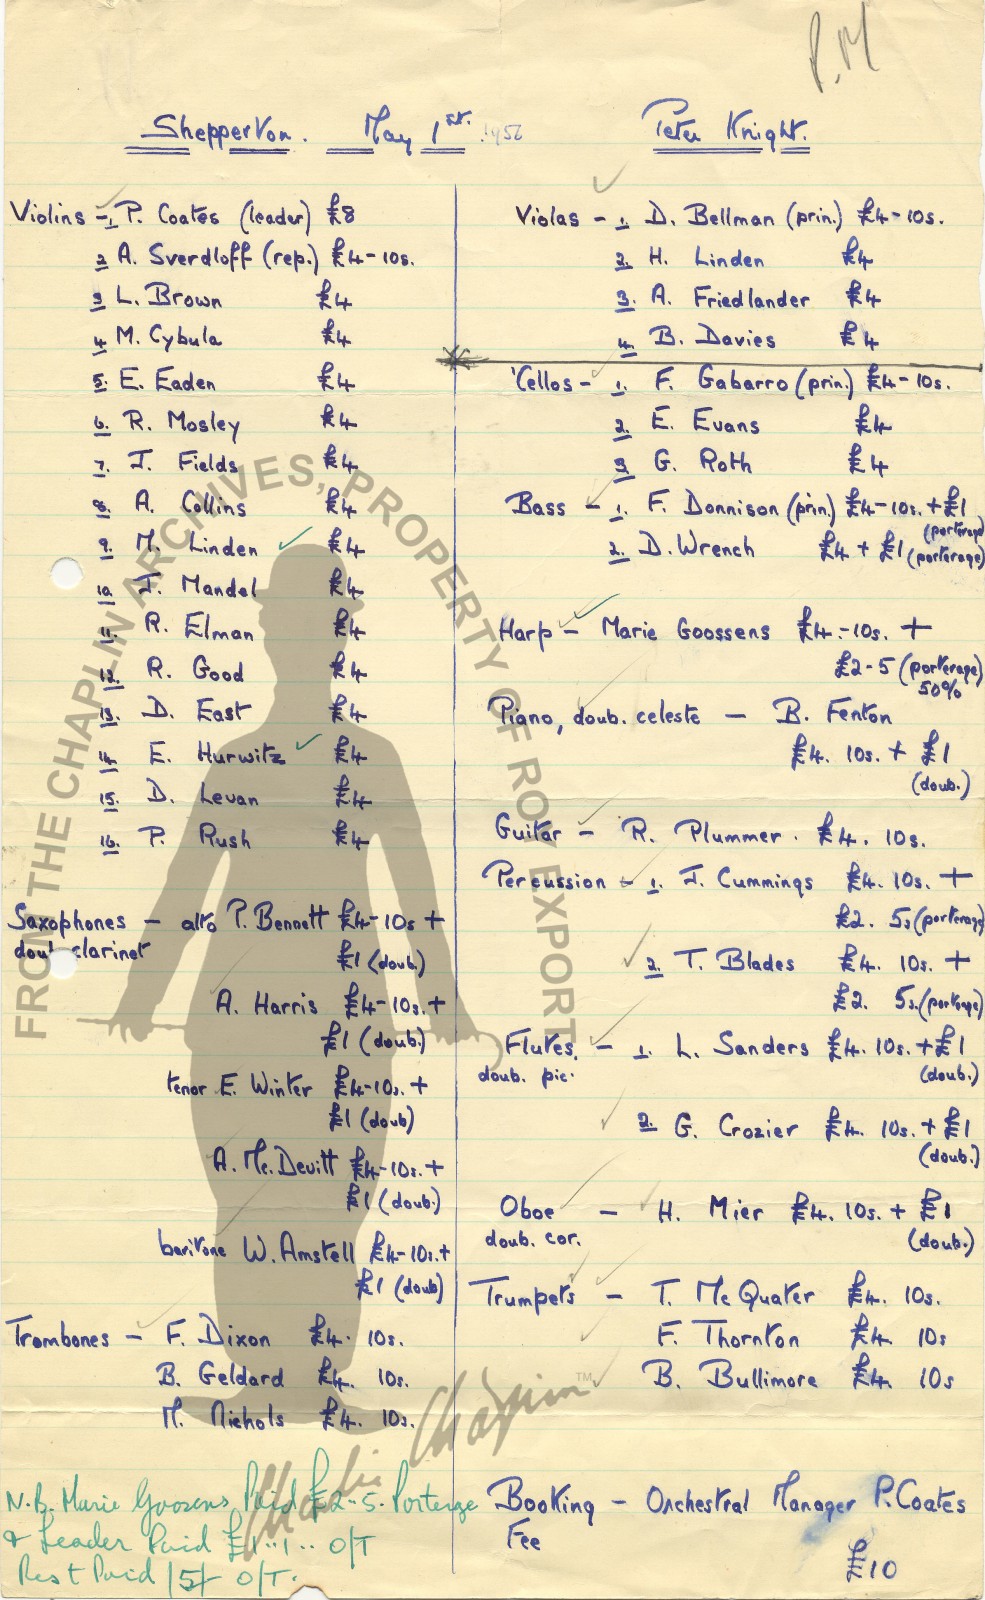 P.M
Shepperton. May 1st. 1956
Peter Knight.
Violins - 1. P. Coates (leader) £8
2 A. Sverdloff (rep.) £4-10s.
3 L. Brown £4
4 M. Cybula £4
5. E. Eaden £4
6. R. Mosley £4
7. J. Fields £4
8. A. Collins £4
9. M. Linden £4
10. J. Mandel £4
11. R. Elman £4
12. R. Good £4
13. D. East £4
14. E. Hurwitz £4
15. D. Levan £4
16. P. Rush £4
Saxophones - alto P. Bennett £4-10s +
doub. clarinet £1 (doub.)
A. Harris £4-10s. +
£1 (doub.)
tenor E. Winter £4-10s. +
£1 (doub)
A. Mc. Devitt £4-10s. +
£1 (doub.)
baritone W. Amstell £4-10s. +
£1 (doub)
Trombones - F. Dixon £4. 10s.
B. Geldard £4. 10s.
M. Nichols £4. 10s.
N.B. Marie Goosens Paid £2-5. Porterage
& Leader Paid £1..1.. O/T
Rest Paid 15/- O/T.
Violas - 1. D. Bellman (prin.) £4-10s.
2. H. Linden £4
3. A. Friedlander £4
4. B. Davies £4
'Cellos - 1. F. Gabarro (prin.) £4-10s.
2. E. Evans £4
3 G. Roth £4
Bass - 1. F. Donnison (prin.) £4-10s. + £1
(porterage)
2. D. Wrench £4 + £1 (porterage)
Harp - Marie Goossens £4-10s. +
£2-5 (porterage)
50%
Piano, doub. celeste - B. Fenton
£4. 10s. + £1
(doub.)
Guitar - R. Plummer. £4. 10s.
Percussion - 1. J. Cummings £4. 10s. +
£2. 5s (porterage)
2. T. Blades £4. 10s. +
£2. 5s. (porterage)
Flutes, - 1. L. Sanders £4. 10s. + £1
doub. pic. (doub.)
2. G. Crozier £4. 10s. + £1
(doub.)
Oboe - H. Mier £4. 10s. + £1
doub. cor. (doub.)
Trumpets - T. Mc Quater £4. 10s.
F. Thornton £4. 10s
B. Bullimore £4. 10s
Booking - Orchestral Manager P. Coates
Fee
£10
FROM THE CHAPLIN ARCHIVES, PROPERTY OF ROY EXPORT
Charlie Chaplin™